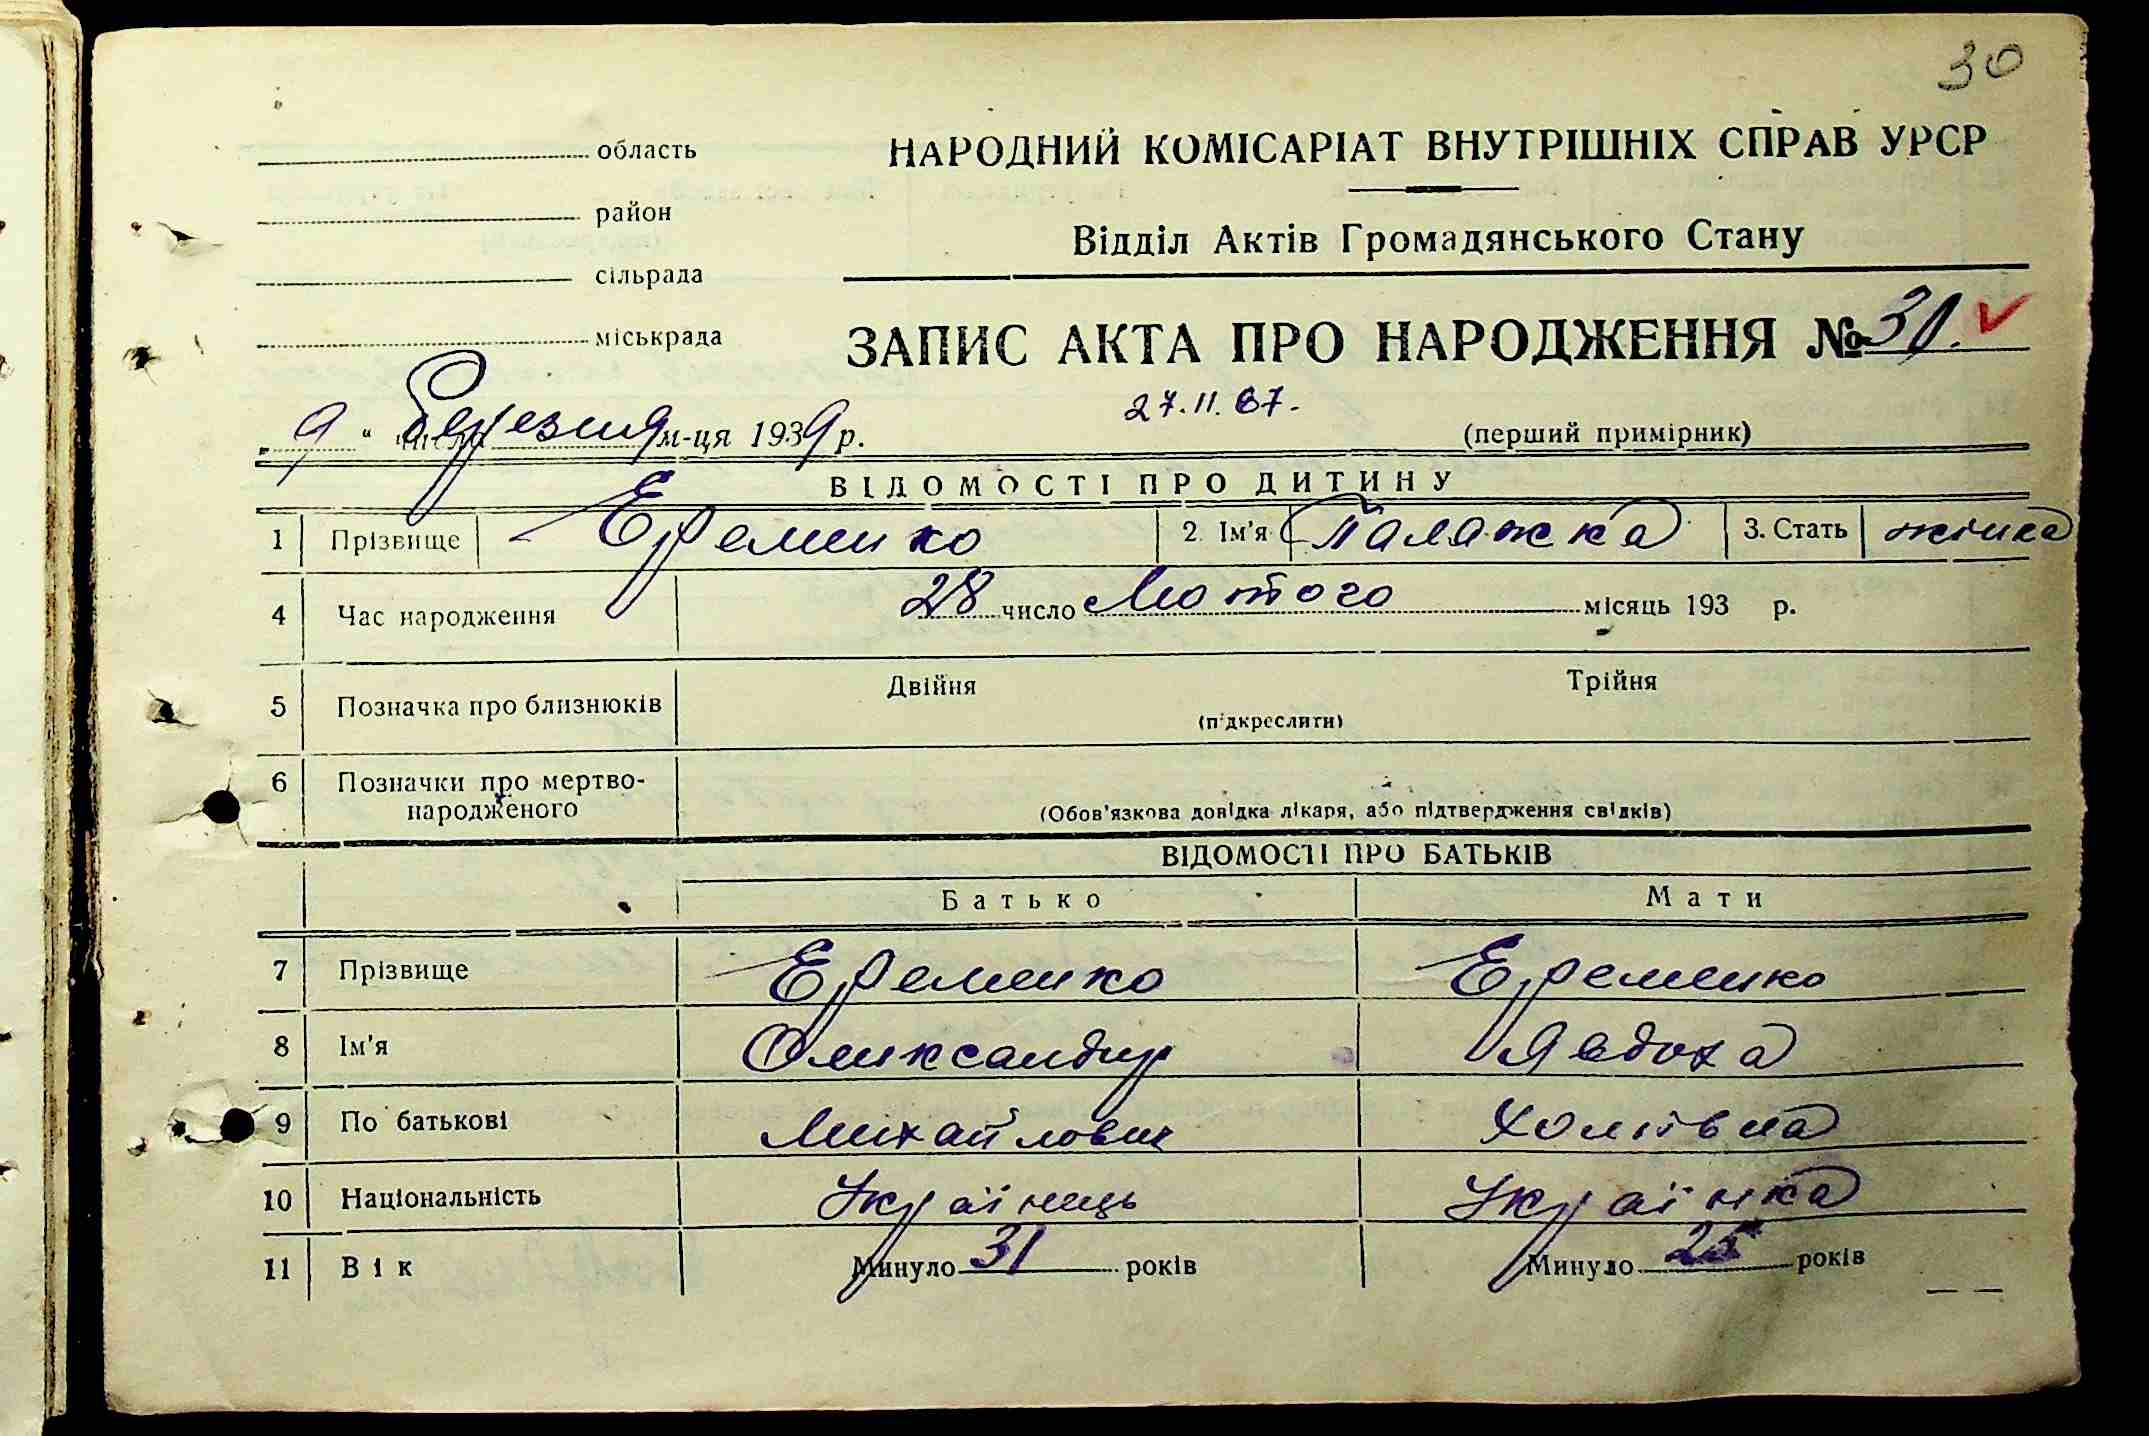 30
область
район
сільрада
міськрада
НАРОДНИЙ КОМІСАРІАТ ВНУТРІШНІХ СПРАВ УРСР
Відділ Актів Громадянського Стану
ЗАПИС АКТА ПРО НАРОДЖЕННЯ № 31.
27.11.67.
„ 9 “ числа Березня м-ця 1939 р.
(перший примірник)
ВІДОМОСТІ ПРО ДИТИНУ
1 Прізвище Еременко 2. Ім'я Палажка 3. Стать жінка
4 Час народження 28 число Лютого місяць 193 р.
5 Позначка про близнюків Двійня Трійня
(підкреслити)
6 Позначки про мертво-
народженого (Обов'язкова довідка лікаря, або підтвердження свідків)
ВІДОМОСТІ ПРО БАТЬКІВ
Батько Мати
7 Прізвище Еременко Еременко
8 Ім'я Олександр Явдоха
9 По батькові Михайлович Хомівна
10 Національність Українець Українка
11 Вік Минуло 31 років Минуло 25 років